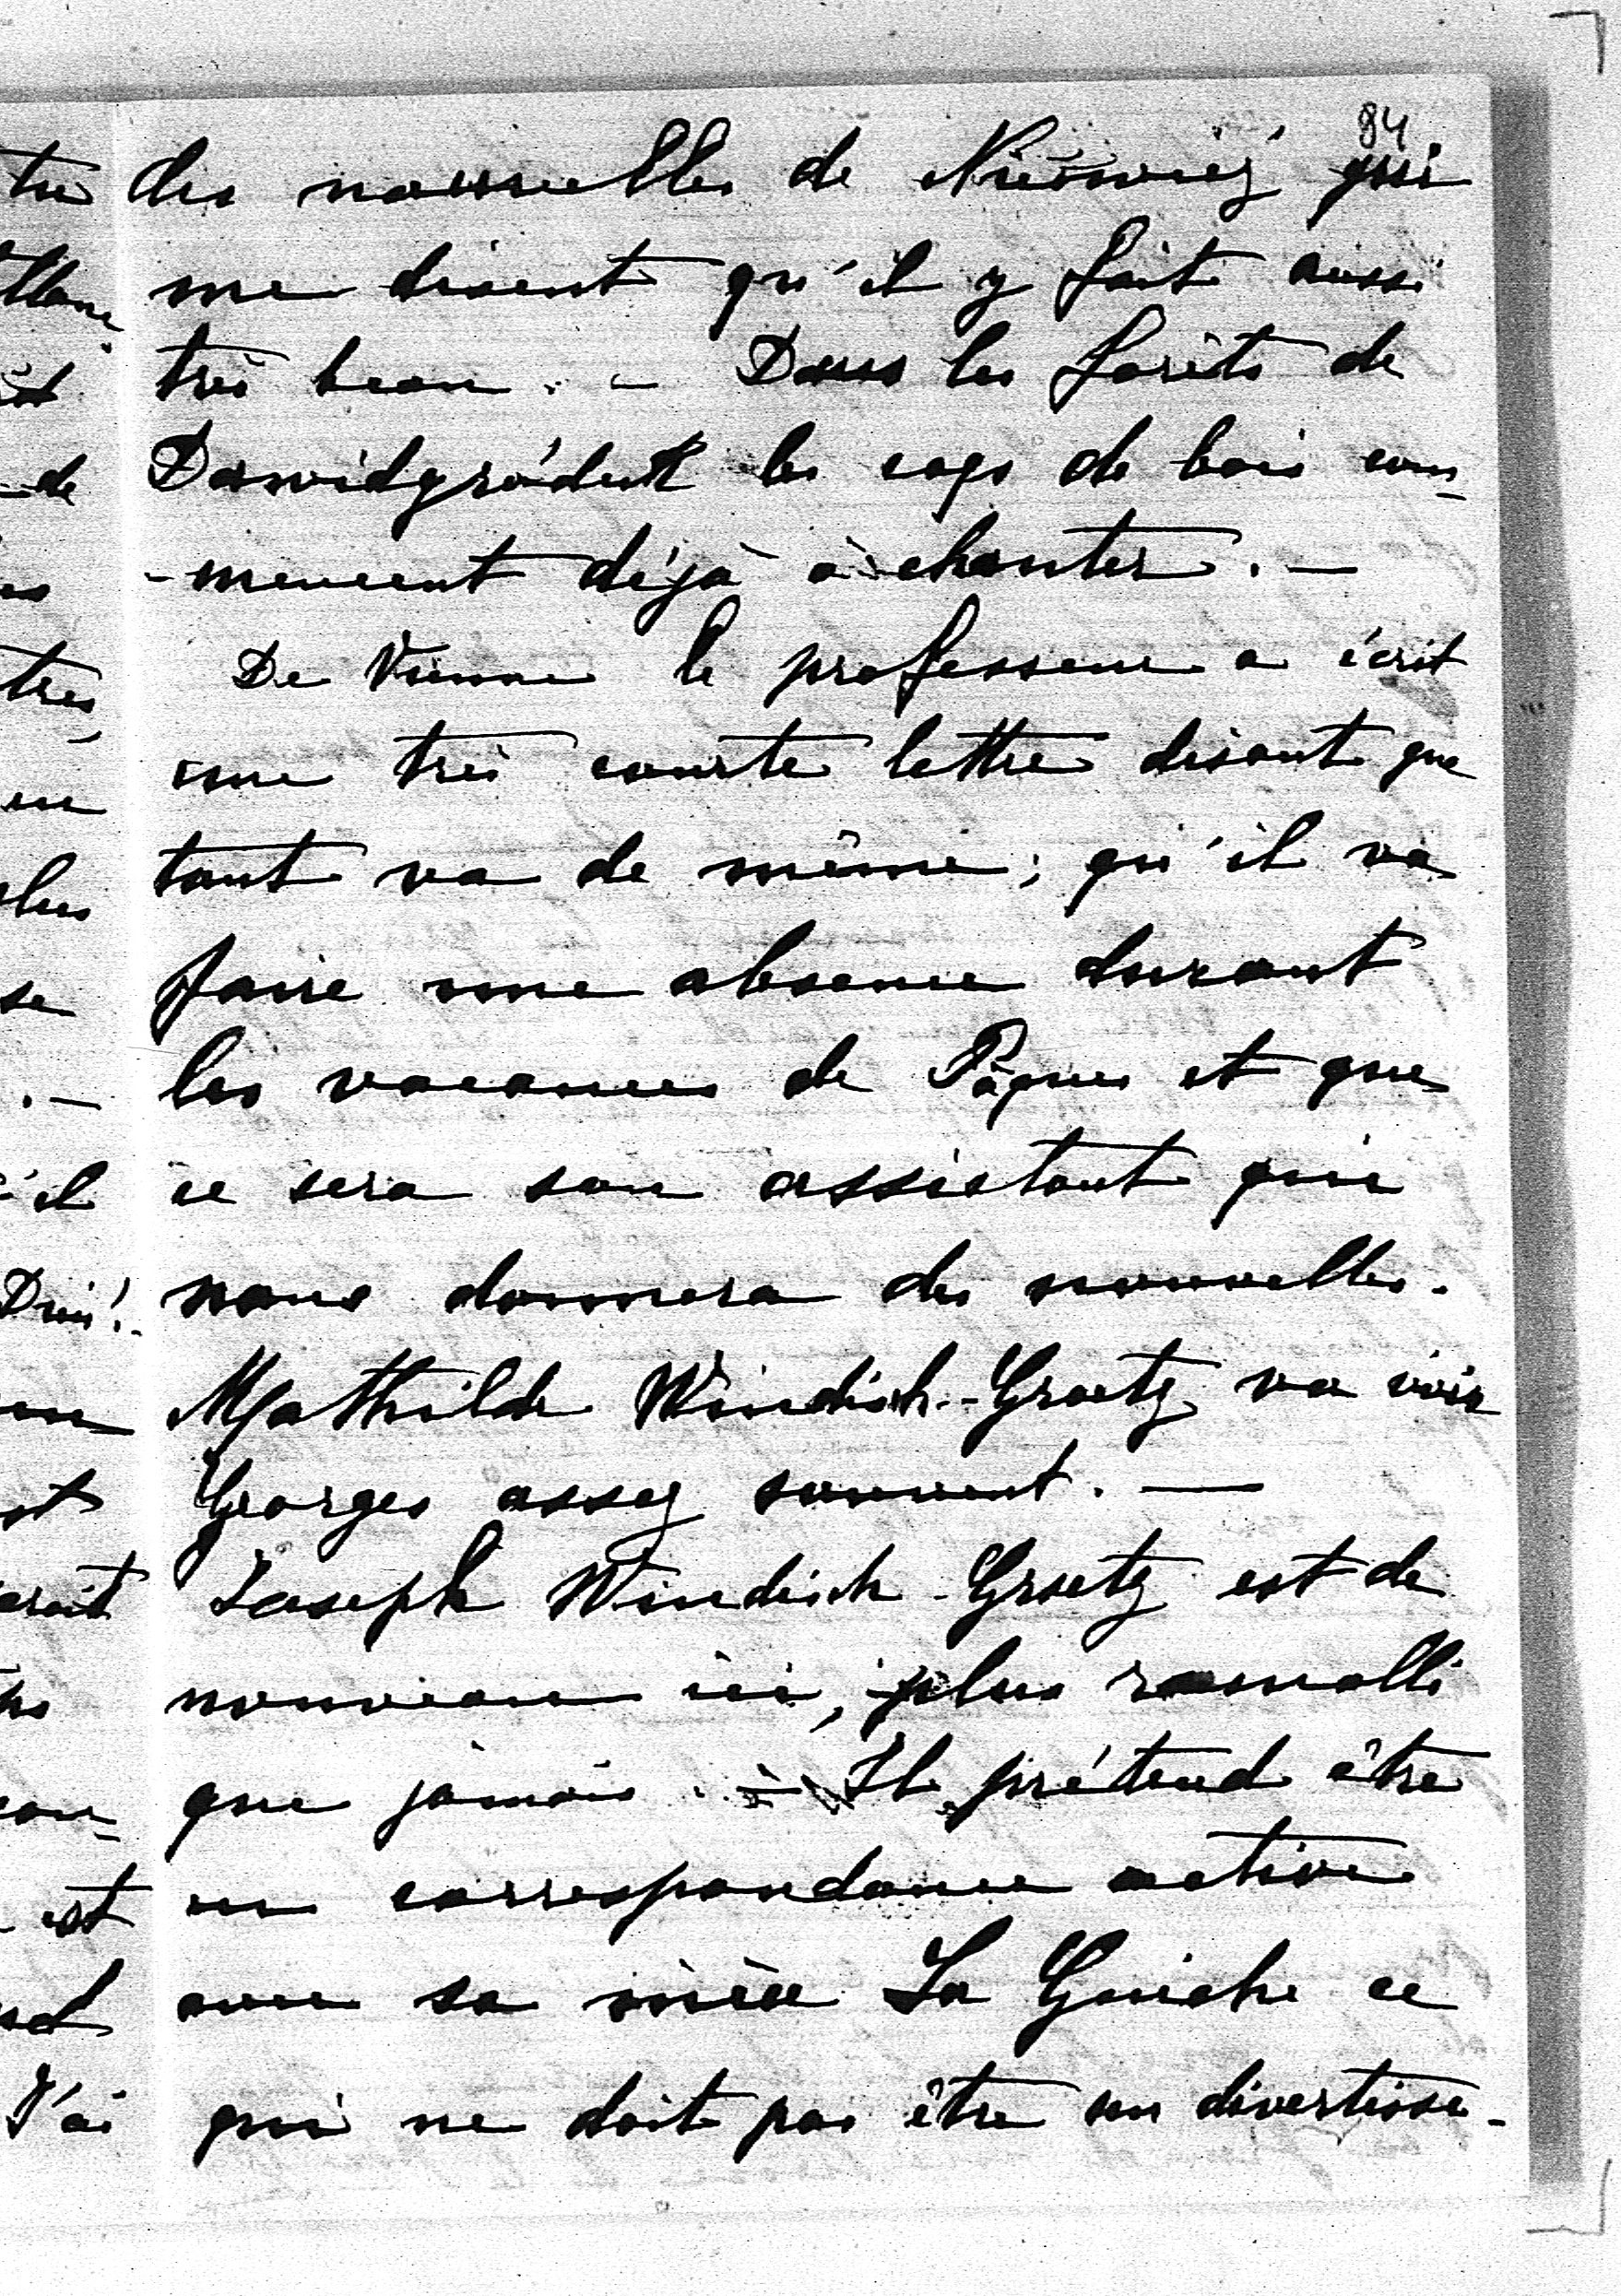 84
des nouvelles de Nieśwież qui
me disent qu'il y fait aussi
très beau. – Dans les forêts de
Dawidgródek les coqs de bois com-
-mencent déjà à chanter. –
De Vienne le professeur a écrit
une très courte lettre disant que
tout va de même; qu'il va
faire une absence durant
les vacances de Pâques et que
ce sera son assistant qui
nous donnera des nouvelles.
Mathilde Windisch-Graetz va voir
Georges assez souvent. –
Joseph Windisch-Graetz est de
nouveau ici, plus ramolli
que jamais. – Il prétend être
en correspondance active
avec sa nièce La Guiche ce
qui ne doit pas être un divertisse-